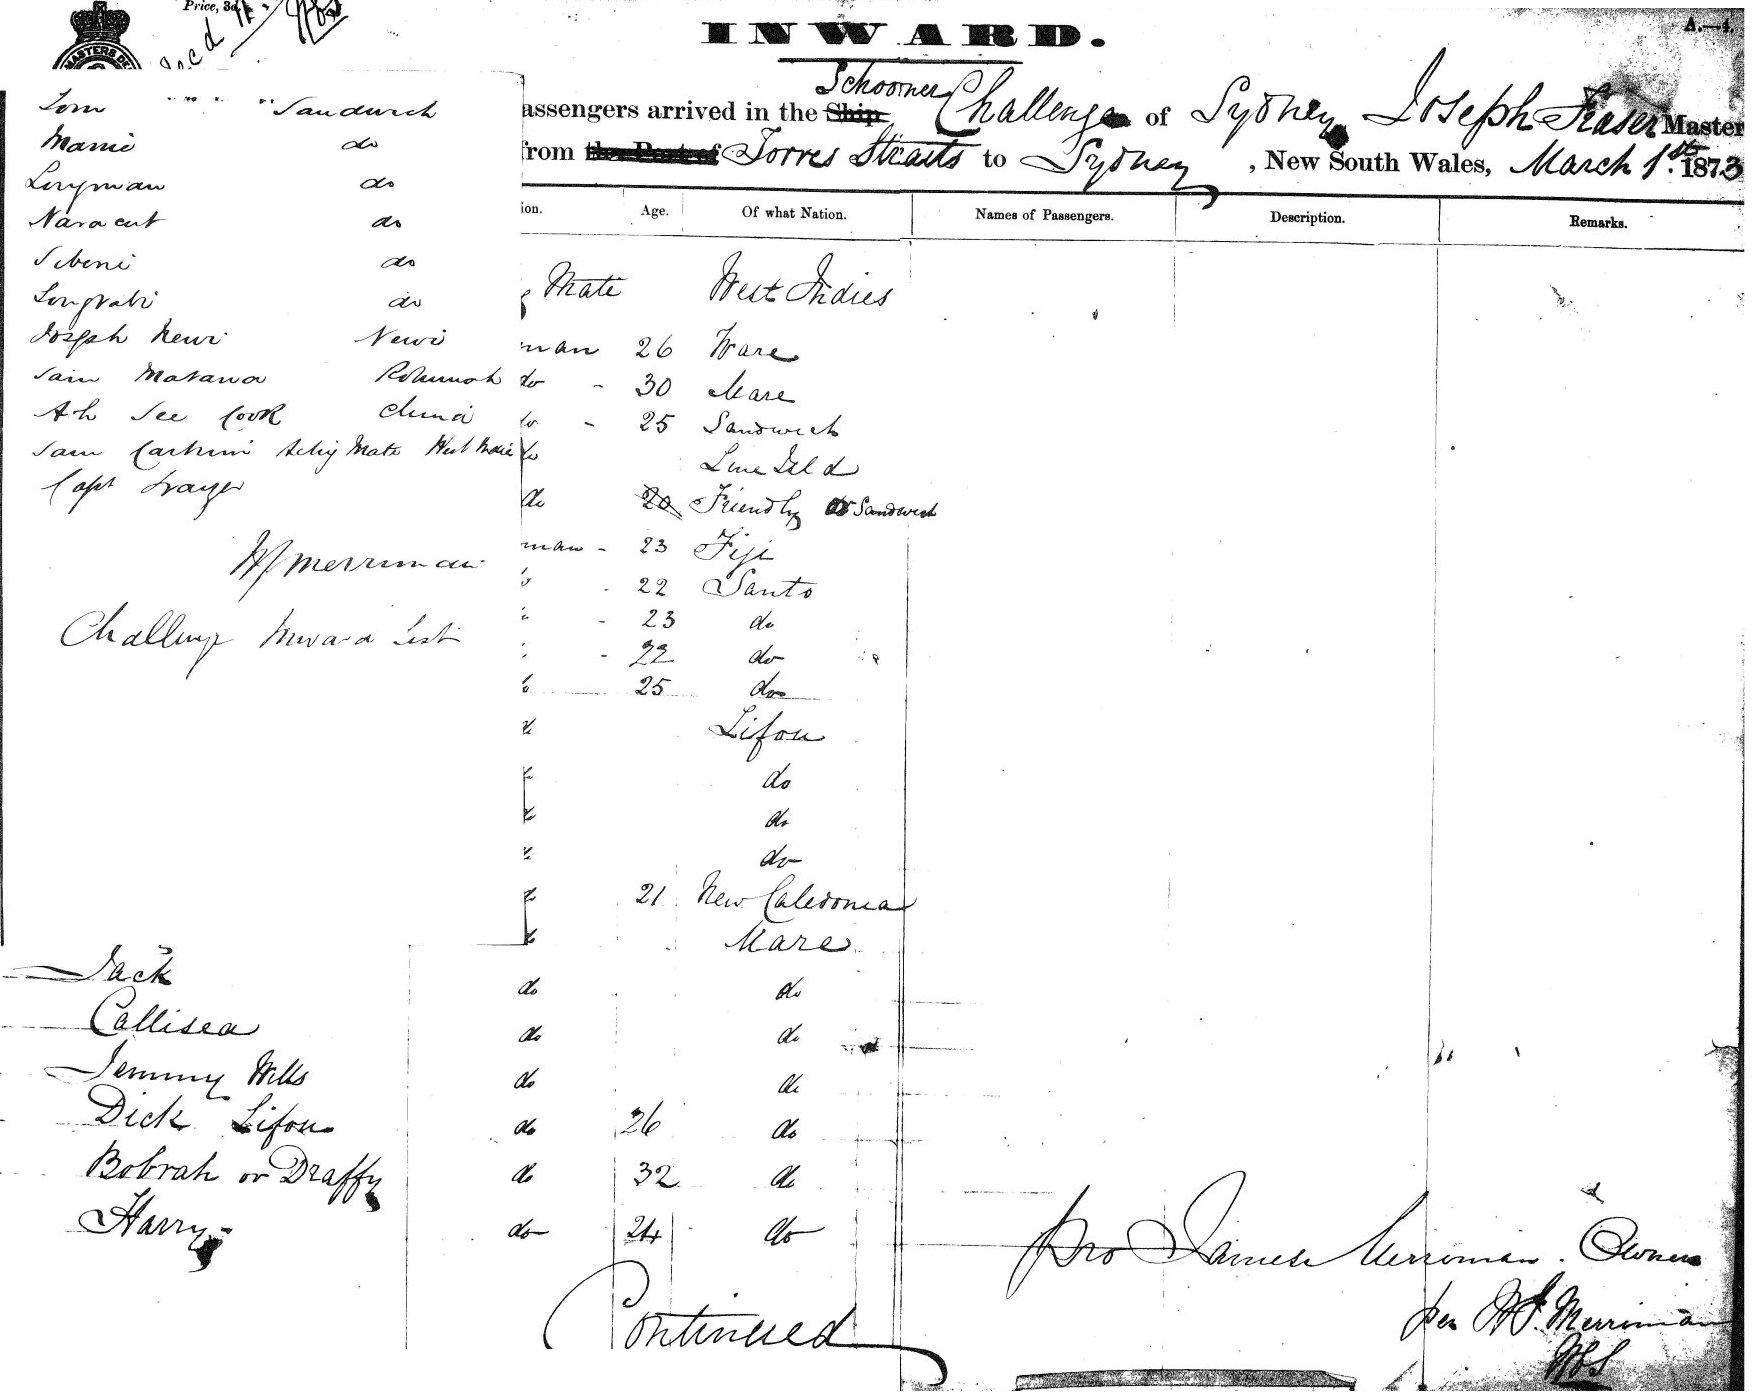 Price, 3d.
INWARD.
A.—4.
Schooner
assengers arrived in the Ship Challenge of Sydney Joseph Fraser Master
from the Port of Torres Straits to Sydney, New South Wales, March 1st. 1873
ion. Age. Of what Nation. Names of Passengers. Description. Remarks.
Tom " " " Sandwich
Mamie do
Loryman do
Naracut do
Sibeni do
do
Joseph Newi Newi
Sam Matawa Rotumah
Ah See Cook China
Sam Mate West Indies
Capt Frazer
W J Merriman
Challenge Inward List
Mate West Indies
man 26 Ware
do - 30 Mare
do - 25 Sandwich
do Line Isld
do 20 Friendly or Sandwich
man - 23 Fiji
22 Santo
- 23 do
- 22 do
25 do
Lifou
do
do
do
21 New Caledonia
Mare
Jack do do
Callisea do do
Jemmy Wills do do
Dick Lifou do 26 do
Bobrah or Draffy do 32 do
Harry do 24 do
Continued
pro James Merriman. Owner
per W J. Merriman